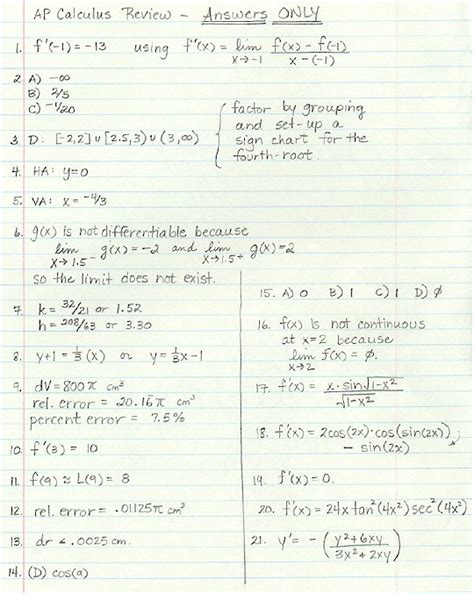 AP Calculus Review – Answers ONLY
1. f'(-1) = -13 using f'(x) = lim x→-1 f(x) - f(-1) / x - (-1)
2. A) -∞
B) 2/5
C) -1/20
3. D: [-2,2] ∪ [2.5,3) ∪ (3,∞)
{ factor by grouping
and set-up a
sign chart for the
fourth-root.
4. HA: y=0
5. VA: x = -4/3
6. g(x) is not differentiable because
lim x→1.5⁻ g(x) = -2 and lim x→1.5⁺ g(x) = 2
so the limit does not exist.
7. k = 32/21 or 1.52
h = 208/63 or 3.30
8. y+1 = 1/3 (x) or y = 1/3x - 1
9. dV = 800π cm³
rel. error = 20.16π cm³
percent error = 7.5%
10. f'(3) = 10
11. f(9) ≈ L(9) = 8
12. rel. error = .01125π cm³
13. dr < .0025 cm.
14. (D) cos(a)
15. A) 0 B) 1 C) 1 D) ∅
16. f(x) is not continuous
at x=2 because
lim x→2 f(x) = ∅.
17. f'(x) = x·sin√1-x² / √1-x²
18. f'(x) = 2cos(2x)·cos(sin(2x))
- sin(2x)
19. f'(x) = 0.
20. f'(x) = 24x tan²(4x²) sec²(4x²)
21. y' = - ( y²+6xy / 3x²+2xy )